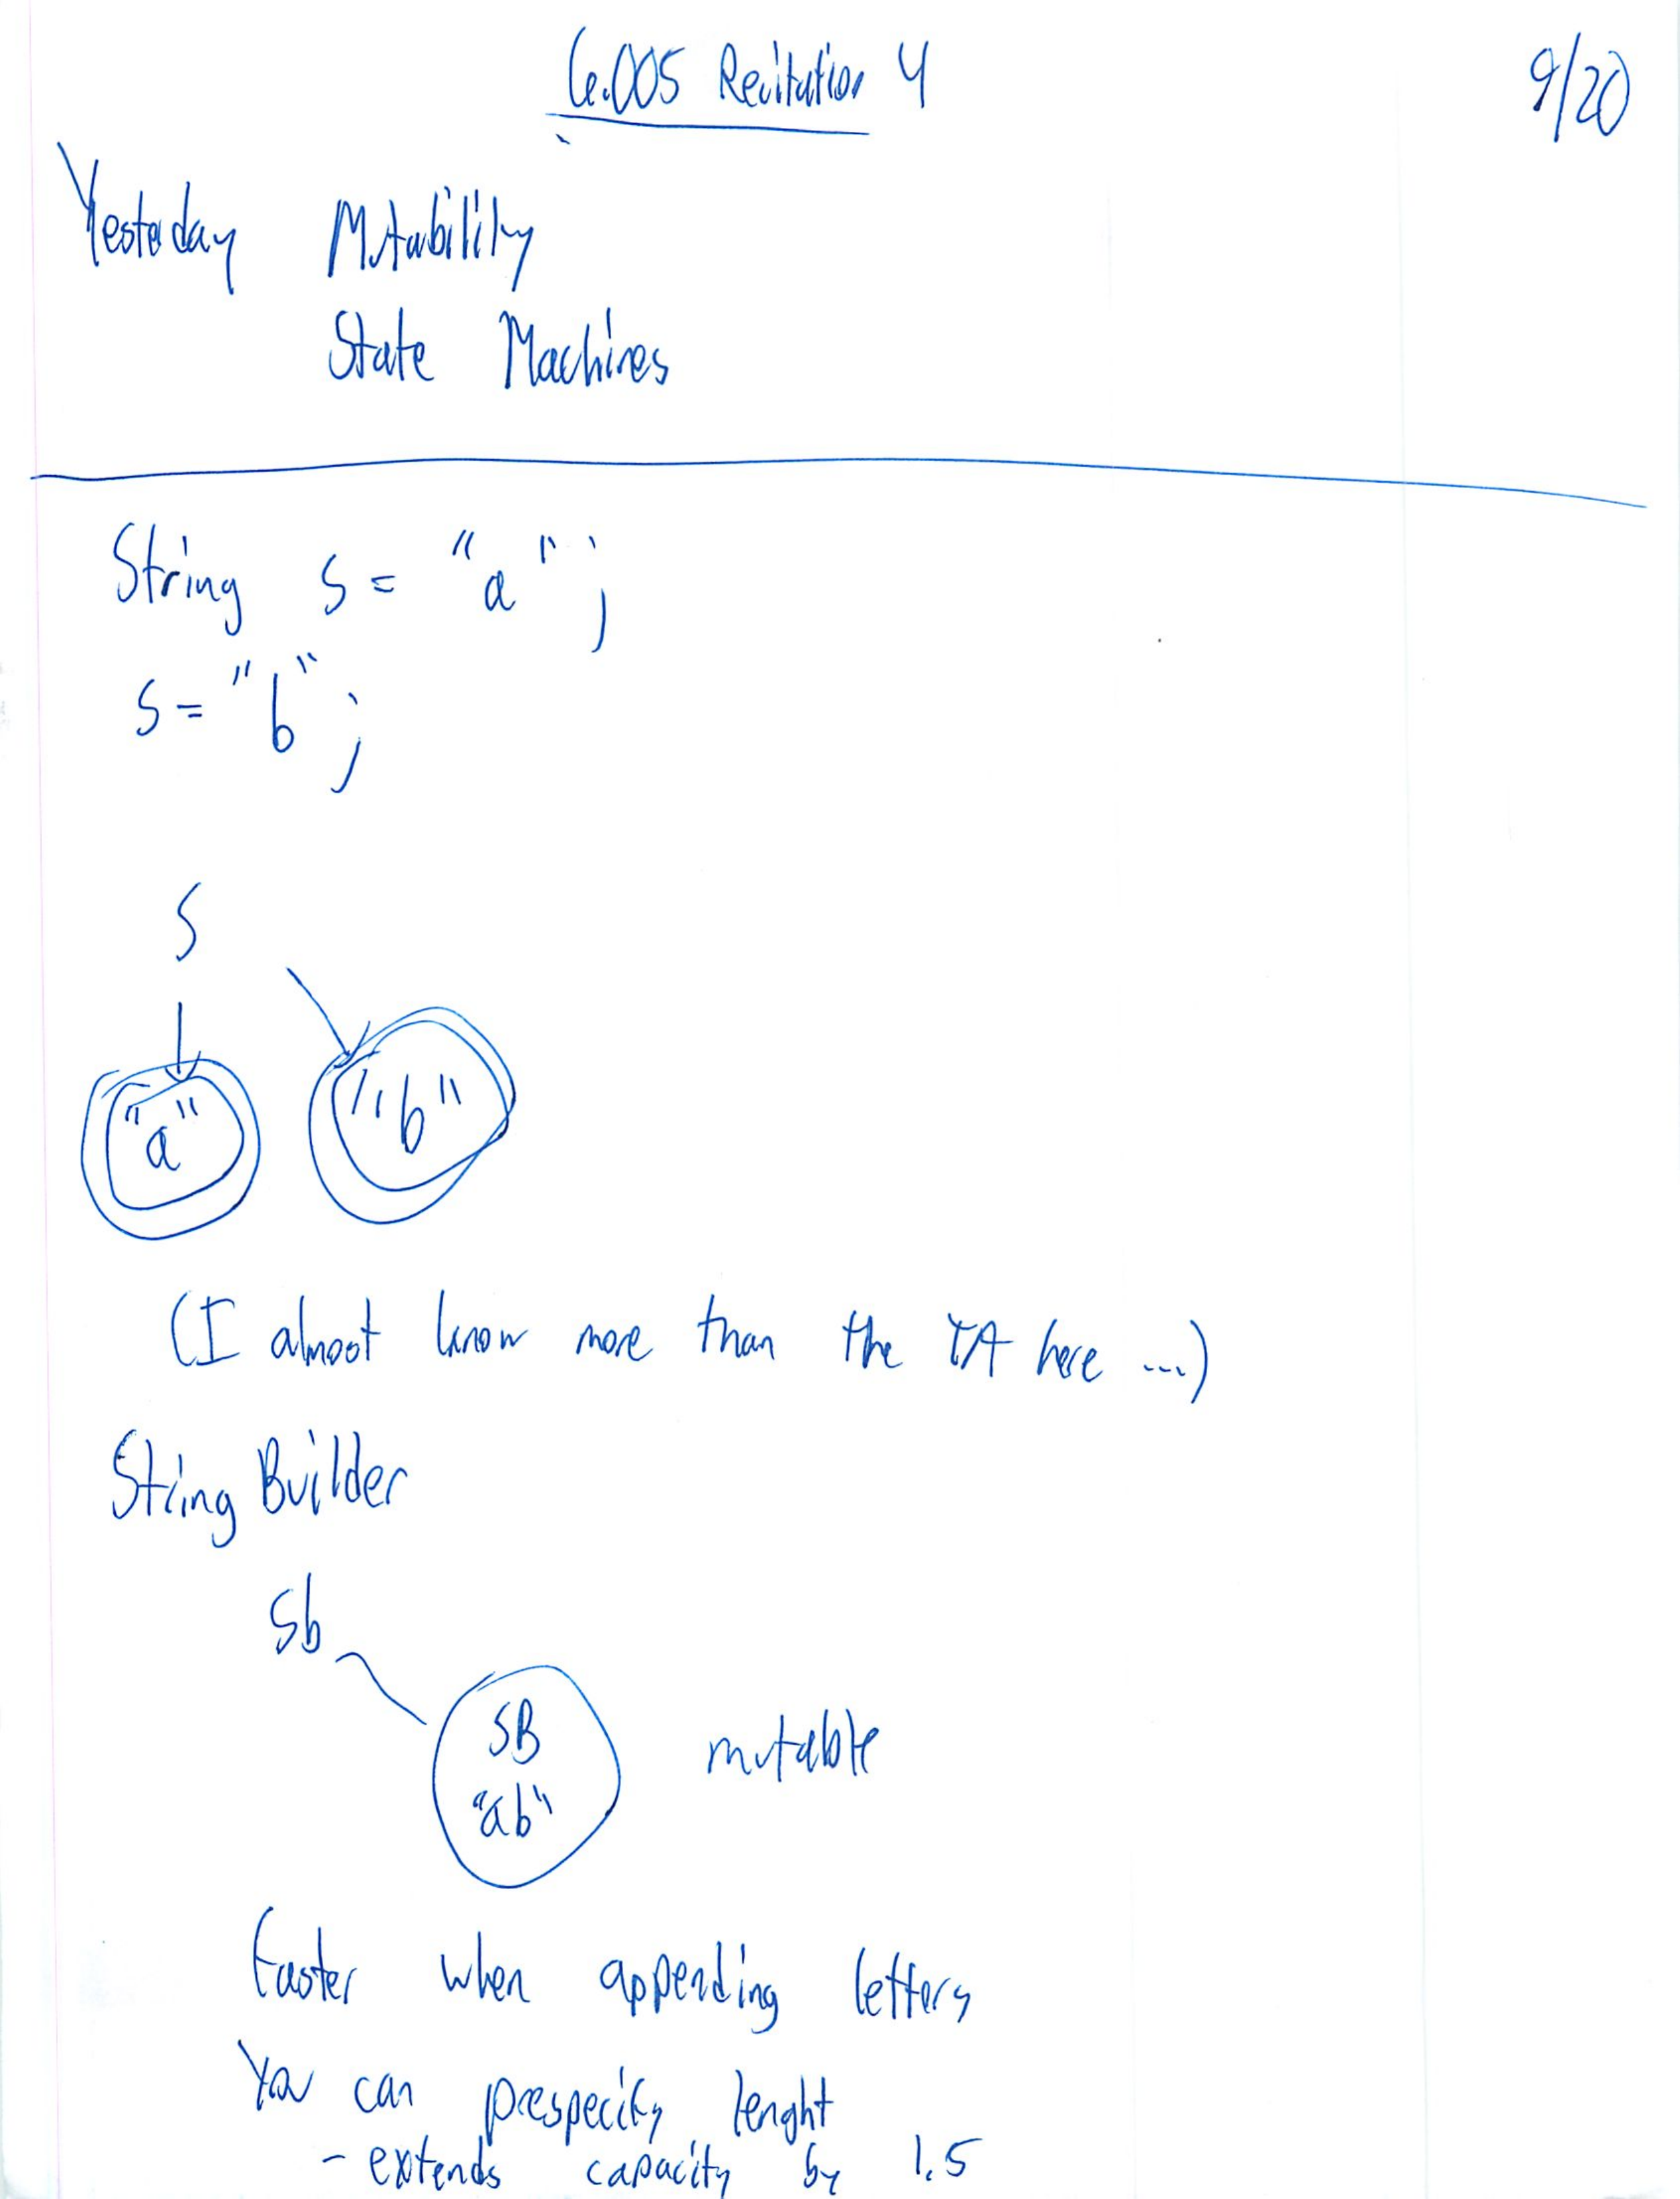 6.005 Recitation 4
9/20
Yesterday Mutability
State Machines
String s = "a";
s = "b";
s
"a" "b"
(I almost know more than the TA here ...)
String Builder
sb
SB
"ab"
mutable
Faster when appending letters
You can prespecify lenght
- extends capacity by 1.5